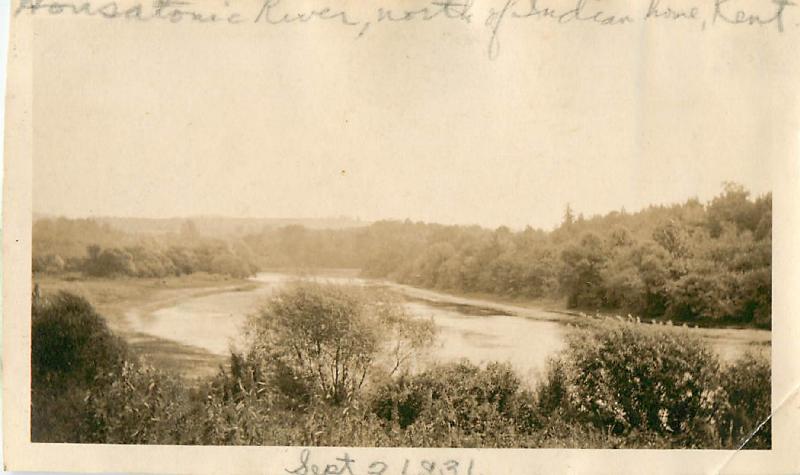 Housatonic River, north of Indian home, Kent
Sept 2 1931